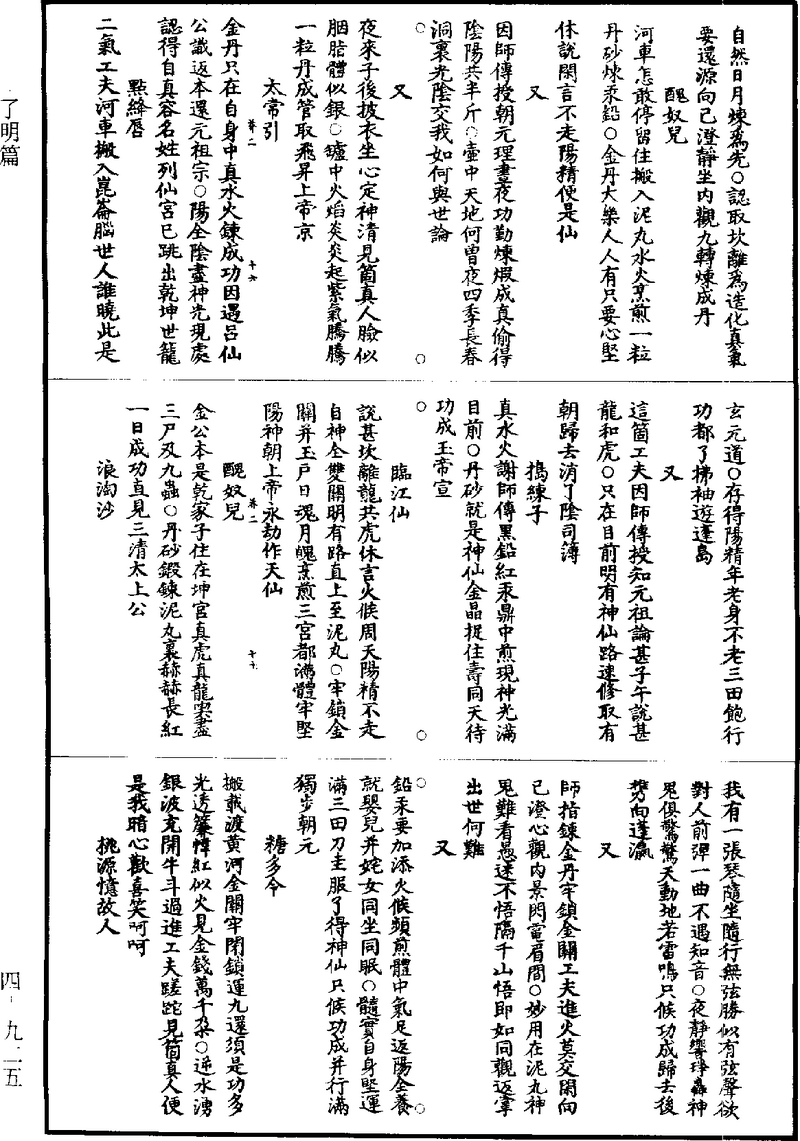 自然日月煉爲先○認取坎離爲造化真氣
要還源向己澄靜坐內觀九轉煉成丹
醜奴兒
河車怎敢停留住搬入泥丸水火烹煎一粒
丹砂煉汞鉛○金丹大藥人人有只要心堅
休說閑言不走陽精便是仙
又
因師傳授朝元理晝夜功勤煉煆成真偷得
陰陽共半斤○壺中天地何曾夜四季長春
洞裏光陰交我如何與世論
○ ○
又
夜來子後披衣坐心定神清見箇真人臉似
胭脂體似銀○鑪中火焰炎炎起紫氣騰騰
一粒丹成管取飛昇上帝京
太常引
金丹只在自身中真水火鍊成功因遇呂仙
卷二 十六
公識返本還元祖宗○陽全陰盡神光現處
認得自真容名姓列仙宮已跳出乾坤世籠
點絳唇
二氣工夫河車搬入崑崙腦世人誰曉此是
玄元道○存得陽精年老身不老三田飽行
功都了拂袖遊蓬島
又
這箇工夫因師傳授知元祖論甚子午說甚
龍和虎○只在目前明有神仙路速修取有
朝歸去消了陰司簿
搗練子
真水火謝師傳黑鉛紅汞鼎中煎現神光滿
目前○丹砂就是神仙金晶捉住壽同天待
功成玉帝宣
○ ○
臨江仙
說甚坎離龍共虎休言火候周天陽精不走
自神全雙關明有路直上至泥丸○牢鎖金
關并玉戶日魂月魄烹煎三宮都滿體牢堅
陽神朝上帝永劫作天仙
卷二 十七
醜奴兒
金公本是乾家子住在坤宮真虎真龍喫盡
三尸及九蟲○丹砂鍛鍊泥丸裏赫赫長紅
一日成功直見三清太上公
浪淘沙
我有一張琴隨坐隨行無弦勝似有弦聲欲
對人前彈一曲不遇知音○夜靜響琤轟神
鬼俱驚驚天動地若雷鳴只候功成歸去後
携向蓬瀛
又
師指鍊金丹牢鎖金關工夫進火莫交閑向
己澄心觀內景閃電眉間○妙用在泥丸神
鬼難看愚迷不悟隔千山悟即如同觀返掌
出世何難
又
○ ○
鉛汞要加添火候頻煎體中氣足返陽全養
就嬰兒并姹女同坐同眠○髓實自身堅運
滿三田刀圭服了得神仙只候功成并行滿
獨步朝元
糖多令
搬載渡黃河金關牢閉鎖運九還須是功多
光透簾幃紅似火見金錢萬千朵○逆水湧
銀波充開牛斗過進工夫蹉跎見箇真人便
是我暗心歡喜笑呵呵
桃源憶故人
了明篇
四-九二五